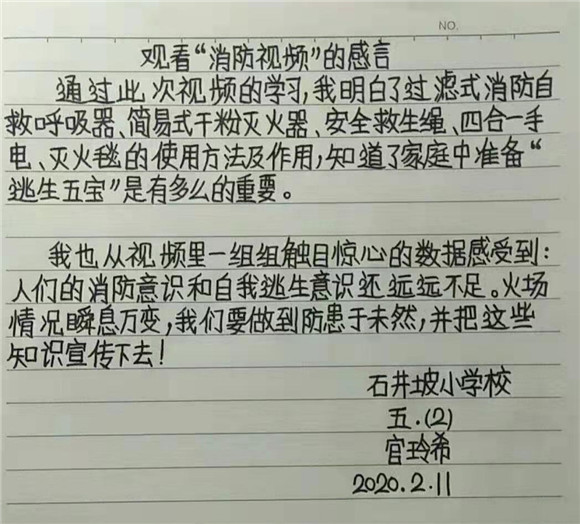 NO.
观看“消防视频”的感言
通过此次视频的学习,我明白了过滤式消防自
救呼吸器、简易式干粉灭火器、安全救生绳、四合一手
电、灭火毯的使用方法及作用,知道了家庭中准备“
逃生五宝”是有多么的重要。
我也从视频里一组组触目惊心的数据感受到:
人们的消防意识和自我逃生意识还远远不足。火场
情况瞬息万变,我们要做到防患于未然,并把这些
知识宣传下去!
石井坡小学校
五.(2)
官玲希
2020.2.11